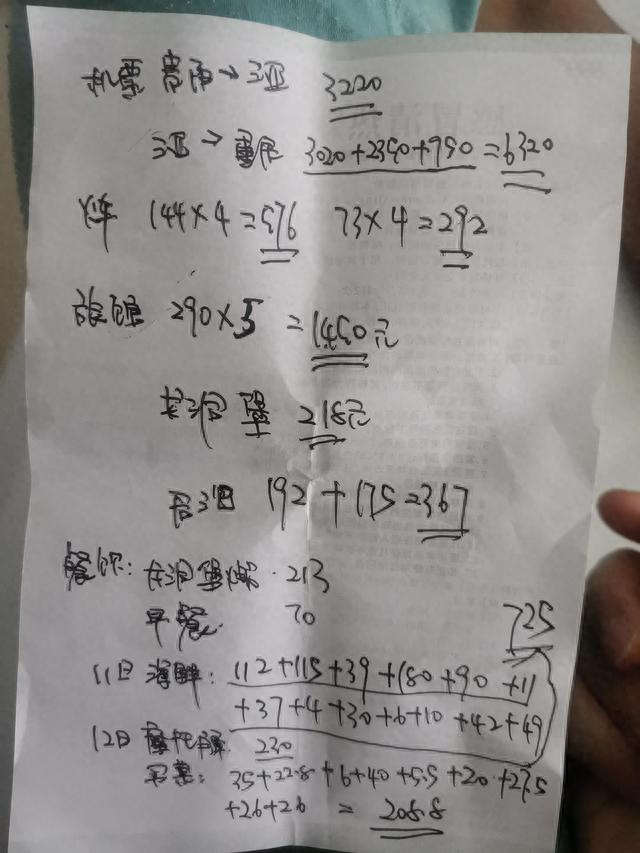 机票 贵南→三亚 3220
三亚→重庆 3020+2390+990=6320
火车 144×4=576 73×4=292
旅馆 290×5=1450元
218元
192+175=367
餐饮: 213
早餐 70
725
11日 海鲜: 112+115+39+180+90+11
+37+4+30+6+10+42+49
12日 230
35+22.8+6+40+5.5+20+27.5
+26+26=208.8